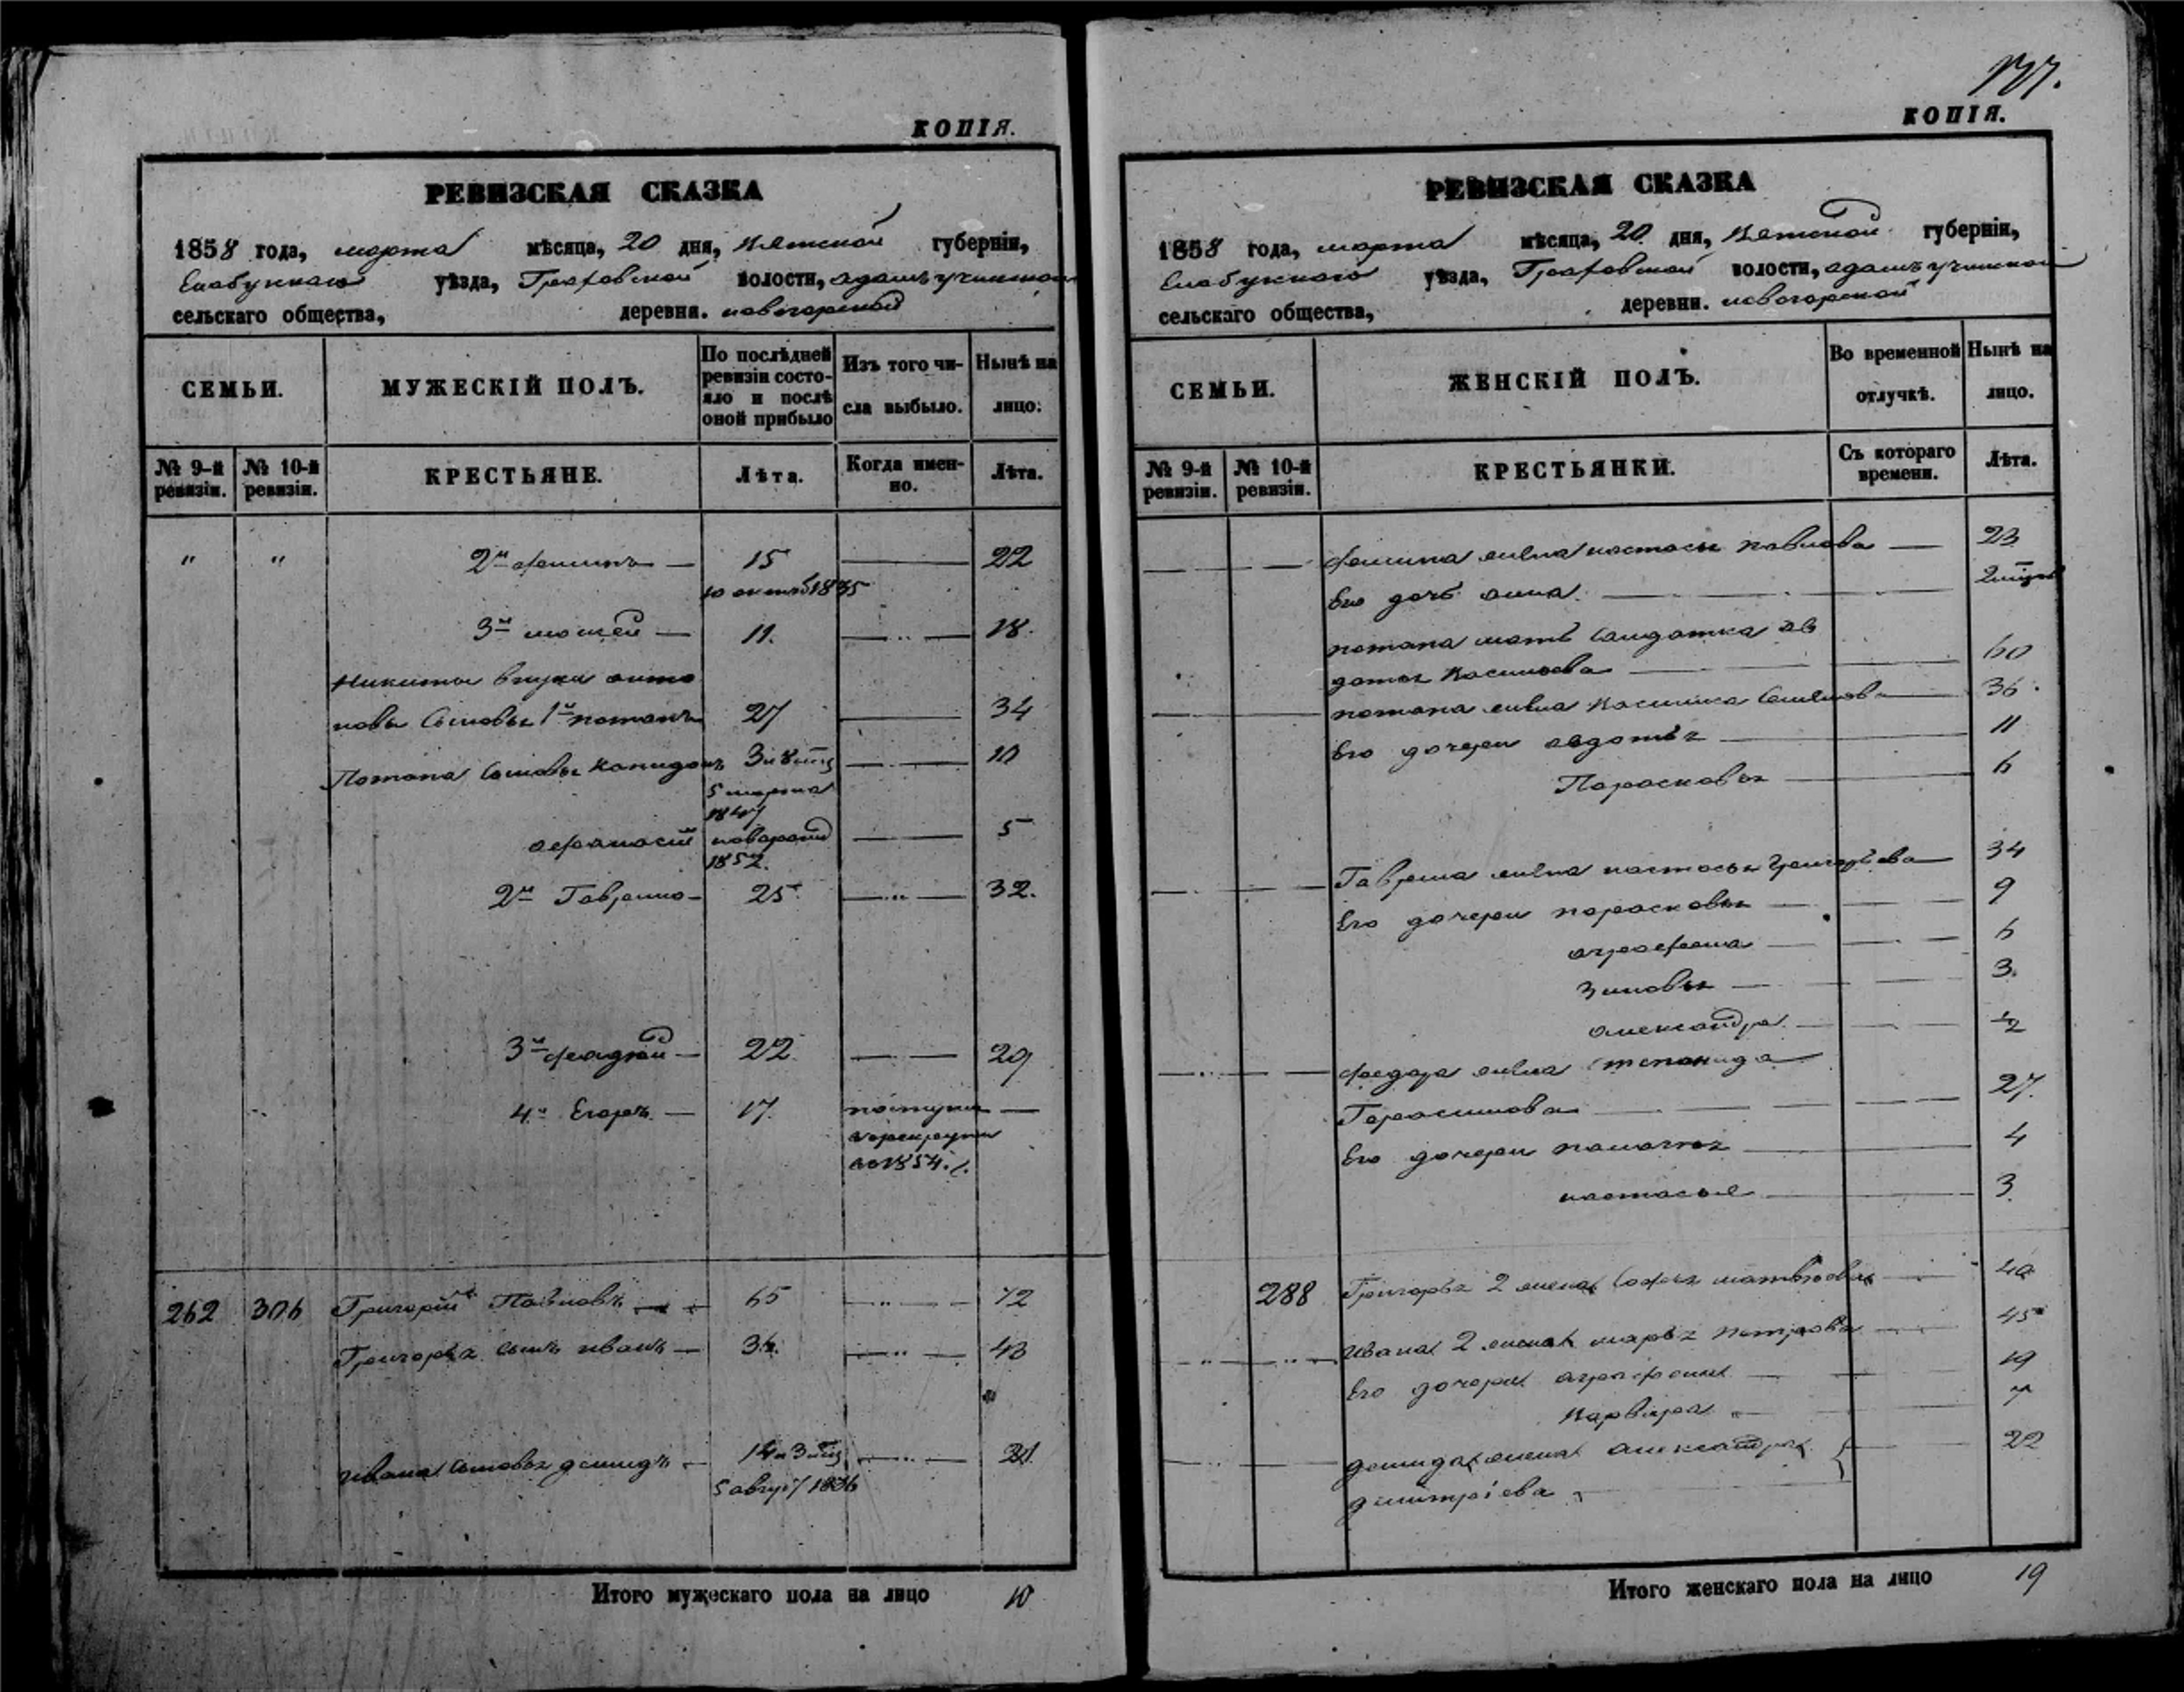 КОПІЯ.
РЕВИЗСКАЯ СКАЗКА
1858 года, марта мѣсяца, 20 дня, Вятской губерніи,
Елабужскаго уѣзда, Граховской волости, адамъучинскаго
сельскаго общества, деревни. новогорской
СЕМЬИ.
МУЖЕСКІЙ ПОЛЪ.
По послѣдней
ревизіи состо-
яло и послѣ
оной прибыло
Изъ того чи-
сла выбыло.
Нынѣ на
лицо.
№ 9-й
ревизіи.
№ 10-й
ревизіи.
КРЕСТЬЯНЕ.
Лѣта.
Когда имен-
но.
Лѣта.
" " 2й 15 22
3й мосей 11. 18.
Никиты внуки анто
новы сыновья 1й потапъ 27 34
Потапа сыновья 10
5 марта
1847
афанасій новорожд 5
1852.
2й Гаврило 25 32.
3й федоръ 22 29
4й Егоръ 17. поступил
в рекруты
во 1854 г.
262 306 Григорій Павловъ 65 72
Григорья сынъ иванъ 36. 43
ивана сыновья демидъ 14 и 3 мѣц 21
Итого мужескаго пола на лицо 10
137.
КОПІЯ.
РЕВИЗСКАЯ СКАЗКА
1858 года, марта мѣсяца, 20 дня, Вятской губерніи,
Елабужскаго уѣзда, Граховской волости, адамъучинскаго
сельскаго общества, деревни. новогорской
СЕМЬИ.
ЖЕНСКІЙ ПОЛЪ.
Во временной
отлучкѣ.
Нынѣ на
лицо.
№ 9-й
ревизіи.
№ 10-й
ревизіи.
КРЕСТЬЯНКИ.
Съ котораго
времени.
Лѣта.
жена настасья павлова 23
Его дочь анна
потапа мать солдатка ав
дотья Васильева 60
потапа жена Василиса Семенова 36
Его дочери авдотья 11
Парасковья 6
Гаврила жена настасья григорьева 34
Его дочери парасковья 9
аграфена 6
Зиновья 3.
александра ½
федора жена степанида
Герасимова 27.
Его дочери 4
настасья 3
288 Григорья 2 жена Софья матвеева
ивана 2 жена марья петрова 45
Его дочери аграфена 19
Варвара 7
демида жена александра 22
дмитріева
Итого женскаго пола на лицо 19